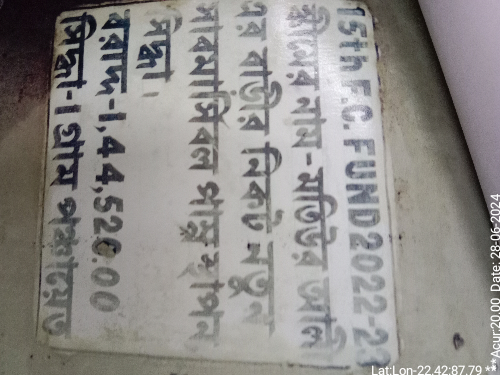 15th F.C. FUND2022-23
স্কীমের নাম-মতিউর আলি
এর বাড়ির নিকট নতুন
সাবমার্সিবল পাম্প স্থাপন
সিদ্ধা।
বরাদ্দ-1,44,526.00
সিদ্ধা-1 গ্রাম পঞ্চায়েত
Lat:Lon-22.42:87.79 ***
***Agur:20.00 Date: 28-06-2024